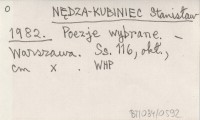 0
NĘDZA-KUBINIEC Stanisław
1982. Poezje wybrane. –
Warszawa. Ss. 116, okł.,
cm x . WHP